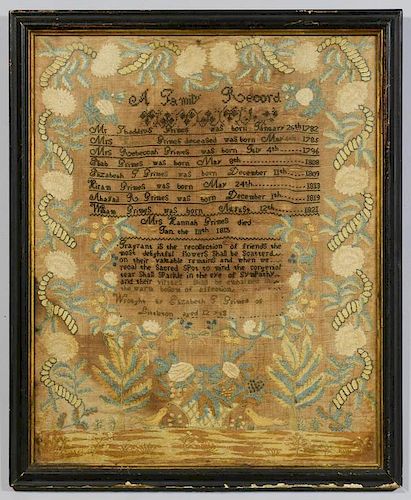 A Family Record
Mr Thaddeus Grimes was born January 26th 1782
Mrs Grimes deceased was born 1785
Mrs Rebeccah Grimes was born July 4th 1796
Grimes was born May 8th 1808
Elizabeth T Grimes was born December 11th 1809
Hiram Grimes was born May 24th 1813
Grimes was born December 1th 1819
William Grimes was born 12th 1821
Mrs Hannah Grimes died
Jan the 18th 1815
Fragrant is the recollection of friends the
most delightful flowers Shall be Scatterd
on their valuable remains and when we
recal the Sacred Spot to mind the congenial
tear Shall Sparkle in the eye of Sympathy
and their virtues Shall be embalmed in
the warm bosom of affection
Wrought by Elizabeth T Grimes of
Littleton aged 12